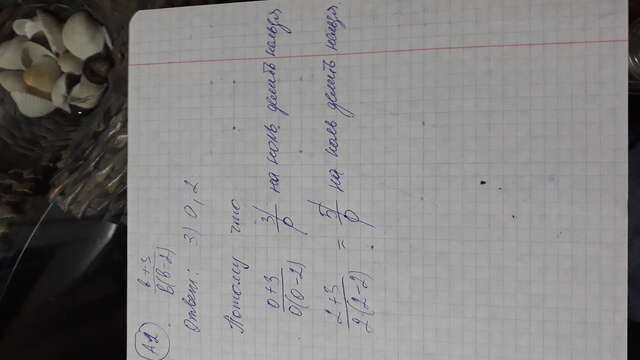 А2 в+3/в(в-2)
Ответ: 3) 0, 2
Потому что
0+3/0(0-2) 3/0 на ноль делить нельзя
2+3/2(2-2) = 5/0 на ноль делить нельзя